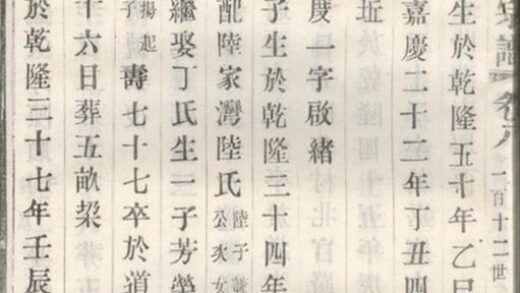 宗譜 卷八 一百十二世
生於乾隆五十年乙巳
嘉慶二十二年丁丑四
近
度一字啟緒
子生於乾隆三十四年
配陸家灣陸氏 陸子謙公次女
繼娶丁氏生一子芳榮
揚起子壽七十七卒於道
十六日葬五畝梁
於乾隆三十七年壬辰